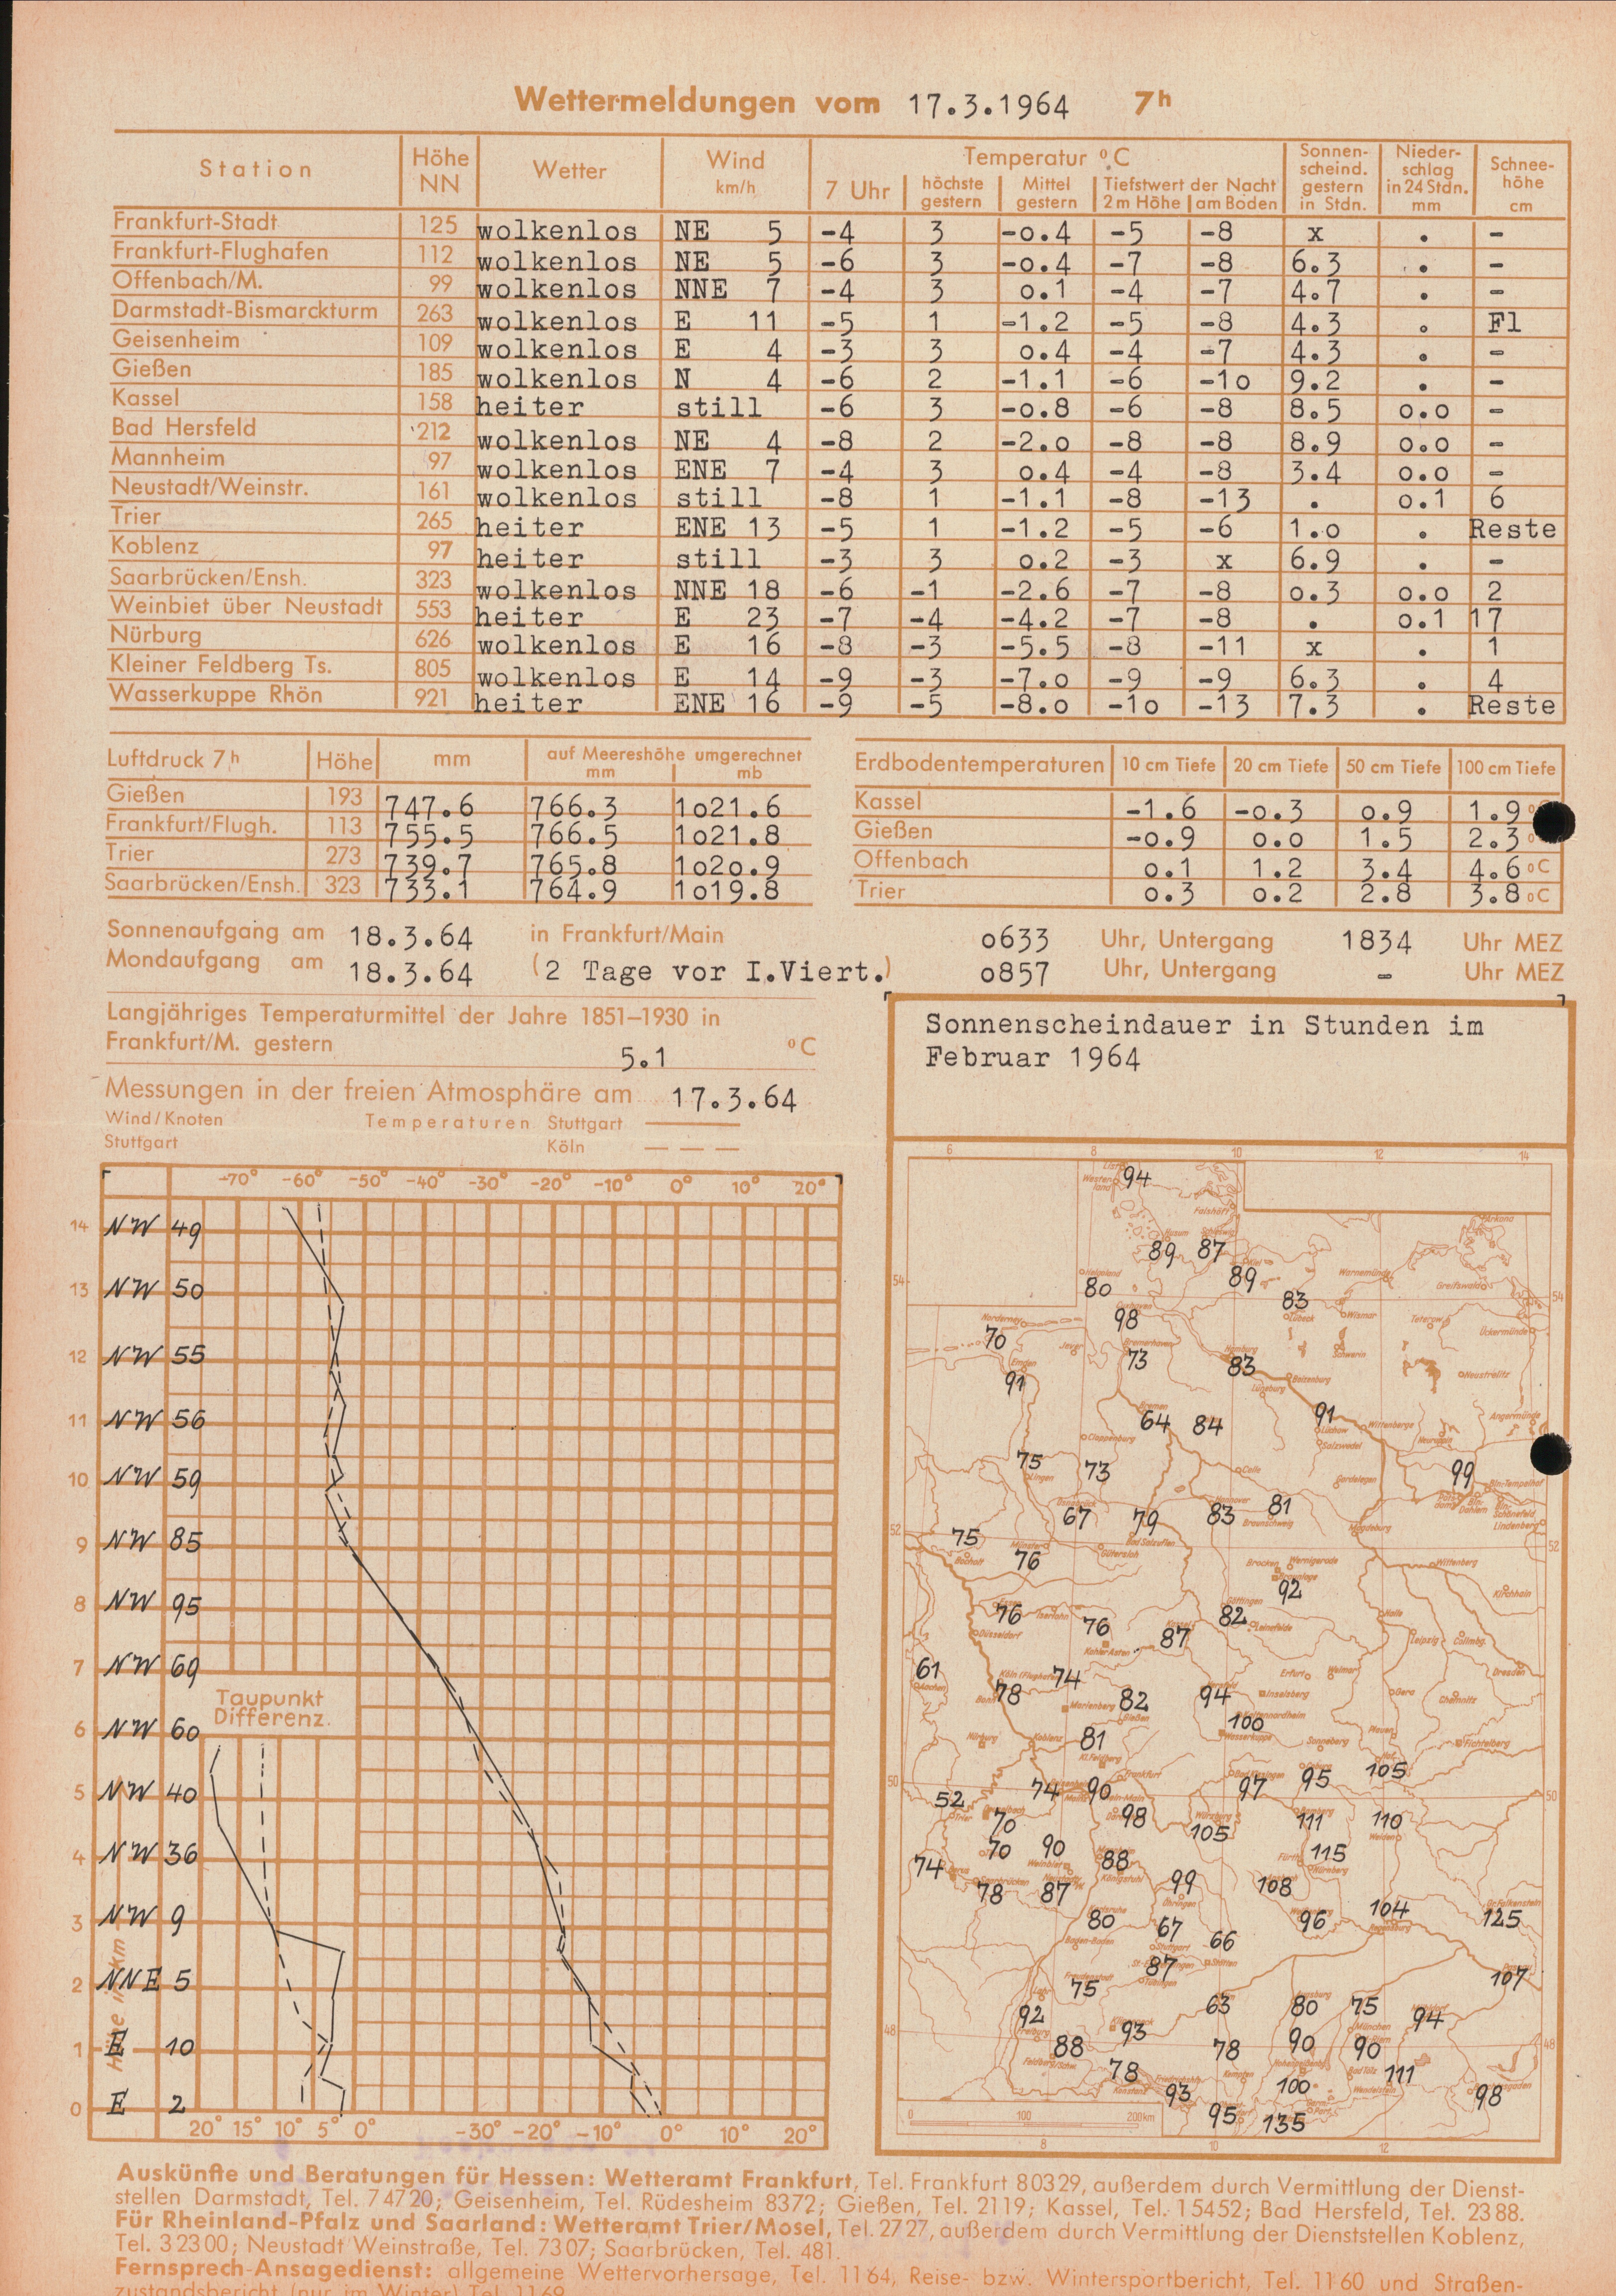 Wettermeldungen vom 17.3.1964 7h
Station Höhe NN Wetter Wind km/h Temperatur °C Sonnenscheind. gestern in Stdn. Niederschlag in 24 Stdn. mm Schneehöhe cm
7 Uhr höchste gestern Mittel gestern Tiefstwert der Nacht 2m Höhe am Boden
Frankfurt-Stadt 125 wolkenlos NE 5 -4 3 -0.4 -5 -8 x . -
Frankfurt-Flughafen 112 wolkenlos NE 5 -6 3 -0.4 -7 -8 6.3 . -
Offenbach/M. 99 wolkenlos NNE 7 -4 3 0.1 -4 -7 4.7 . -
Darmstadt-Bismarckturm 263 wolkenlos E 11 -5 1 -1.2 -5 -8 4.3 . Fl
Geisenheim 109 wolkenlos E 4 -3 3 0.4 -4 -7 4.3 . -
Gießen 185 wolkenlos N 4 -6 2 -1.1 -6 -10 9.2 . -
Kassel 158 heiter still -6 3 -0.8 -6 -8 8.5 0.0 -
Bad Hersfeld 212 wolkenlos NE 4 -8 2 -2.0 -8 -8 8.9 0.0 -
Mannheim 97 wolkenlos ENE 7 -4 3 0.4 -4 -8 3.4 0.0 -
Neustadt/Weinstr. 161 wolkenlos still -8 1 -1.1 -8 -13 . 0.1 6
Trier 265 heiter ENE 13 -5 1 -1.2 -5 -6 1.0 . Reste
Koblenz 97 heiter still -3 3 0.2 -3 x 6.9 . -
Saarbrücken/Ensh. 323 wolkenlos NNE 18 -6 -1 -2.6 -7 -8 0.3 0.0 2
Weinbiet über Neustadt 553 heiter E 23 -7 -4 -4.2 -7 -8 . 0.1 17
Nürburg 626 wolkenlos E 16 -8 -3 -5.5 -8 -11 x . 1
Kleiner Feldberg Ts. 805 wolkenlos E 14 -9 -3 -7.0 -9 -9 6.3 . 4
Wasserkuppe Rhön 921 heiter ENE 16 -9 -5 -8.0 -10 -13 7.3 . Reste
Luftdruck 7h Höhe mm auf Meereshöhe umgerechnet mm mb
Gießen 193 747.6 766.3 1021.6
Frankfurt/Flugh. 113 755.5 766.5 1021.8
Trier 273 739.7 765.8 1020.9
Saarbrücken/Ensh. 323 733.1 764.9 1019.8
Erdbodentemperaturen 10 cm Tiefe 20 cm Tiefe 50 cm Tiefe 100 cm Tiefe
Kassel -1.6 -0.3 0.9 1.9
Gießen -0.9 0.0 1.5 2.3
Offenbach 0.1 1.2 3.4 4.6 °C
Trier 0.3 0.2 2.8 3.8 °C
Sonnenaufgang am 18.3.64 in Frankfurt/Main 0633 Uhr, Untergang 1834 Uhr MEZ
Mondaufgang am 18.3.64 (2 Tage vor I.Viert.) 0857 Uhr, Untergang - Uhr MEZ
Langjähriges Temperaturmittel der Jahre 1851–1930 in
Frankfurt/M. gestern 5.1 °C
Messungen in der freien Atmosphäre am 17.3.64
Wind/Knoten Temperaturen Stuttgart
Stuttgart Köln
-70° -60° -50° -40° -30° -20° -10° 0° 10° 20°
14 NW 49
13 NW 50
12 NW 55
11 NW 56
10 NW 59
9 NW 85
8 NW 95
7 NW 69
Taupunkt
Differenz.
6 NW 60
5 NW 40
4 NW 36
3 NW 9
2 NNE 5
1 E 10
0 E 2
Höhe in km
20° 15° 10° 5° 0° -30° -20° -10° 0° 10° 20°
Sonnenscheindauer in Stunden im
Februar 1964
6 8 10 12 14
94
89 87
80 89
83
98
70
73 83
91
64 84 91
75 73 99
67 79 83 81
75 76
92
76 76 87 82
61 78 74 82 94
100
81
105
74 90 97 95
52 70 98 105 111 110
70 90 88 115
74 78 87 99 108
80 67 66 96 104 125
87
75 107
92 63 80 75 94
88 93 78 90 90
78 93 100 111 98
95 135
0 100 200km
8 10 12
Auskünfte und Beratungen für Hessen: Wetteramt Frankfurt, Tel. Frankfurt 80329, außerdem durch Vermittlung der Dienst-
stellen Darmstadt, Tel. 74720; Geisenheim, Tel. Rüdesheim 8372; Gießen, Tel. 2119; Kassel, Tel. 15452; Bad Hersfeld, Tel. 2388.
Für Rheinland-Pfalz und Saarland: Wetteramt Trier/Mosel, Tel. 2727, außerdem durch Vermittlung der Dienststellen Koblenz,
Tel. 32300; Neustadt Weinstraße, Tel. 7307; Saarbrücken, Tel. 481.
Fernsprech-Ansagedienst: allgemeine Wettervorhersage, Tel. 1164, Reise- bzw. Wintersportbericht, Tel. 1160 und Straßen-
zustandsbericht (nur im Winter) Tel. 1169